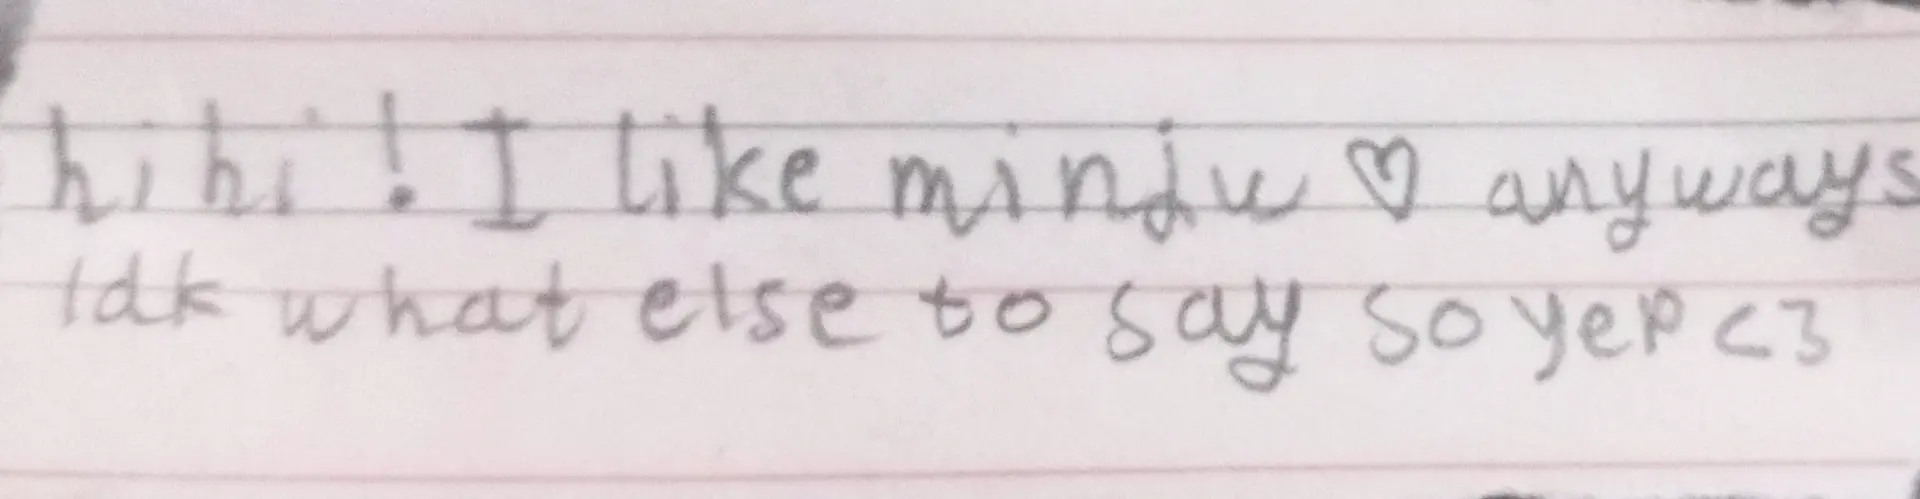 hihi! I like minju ♡ anyways
idk what else to say so yep <3